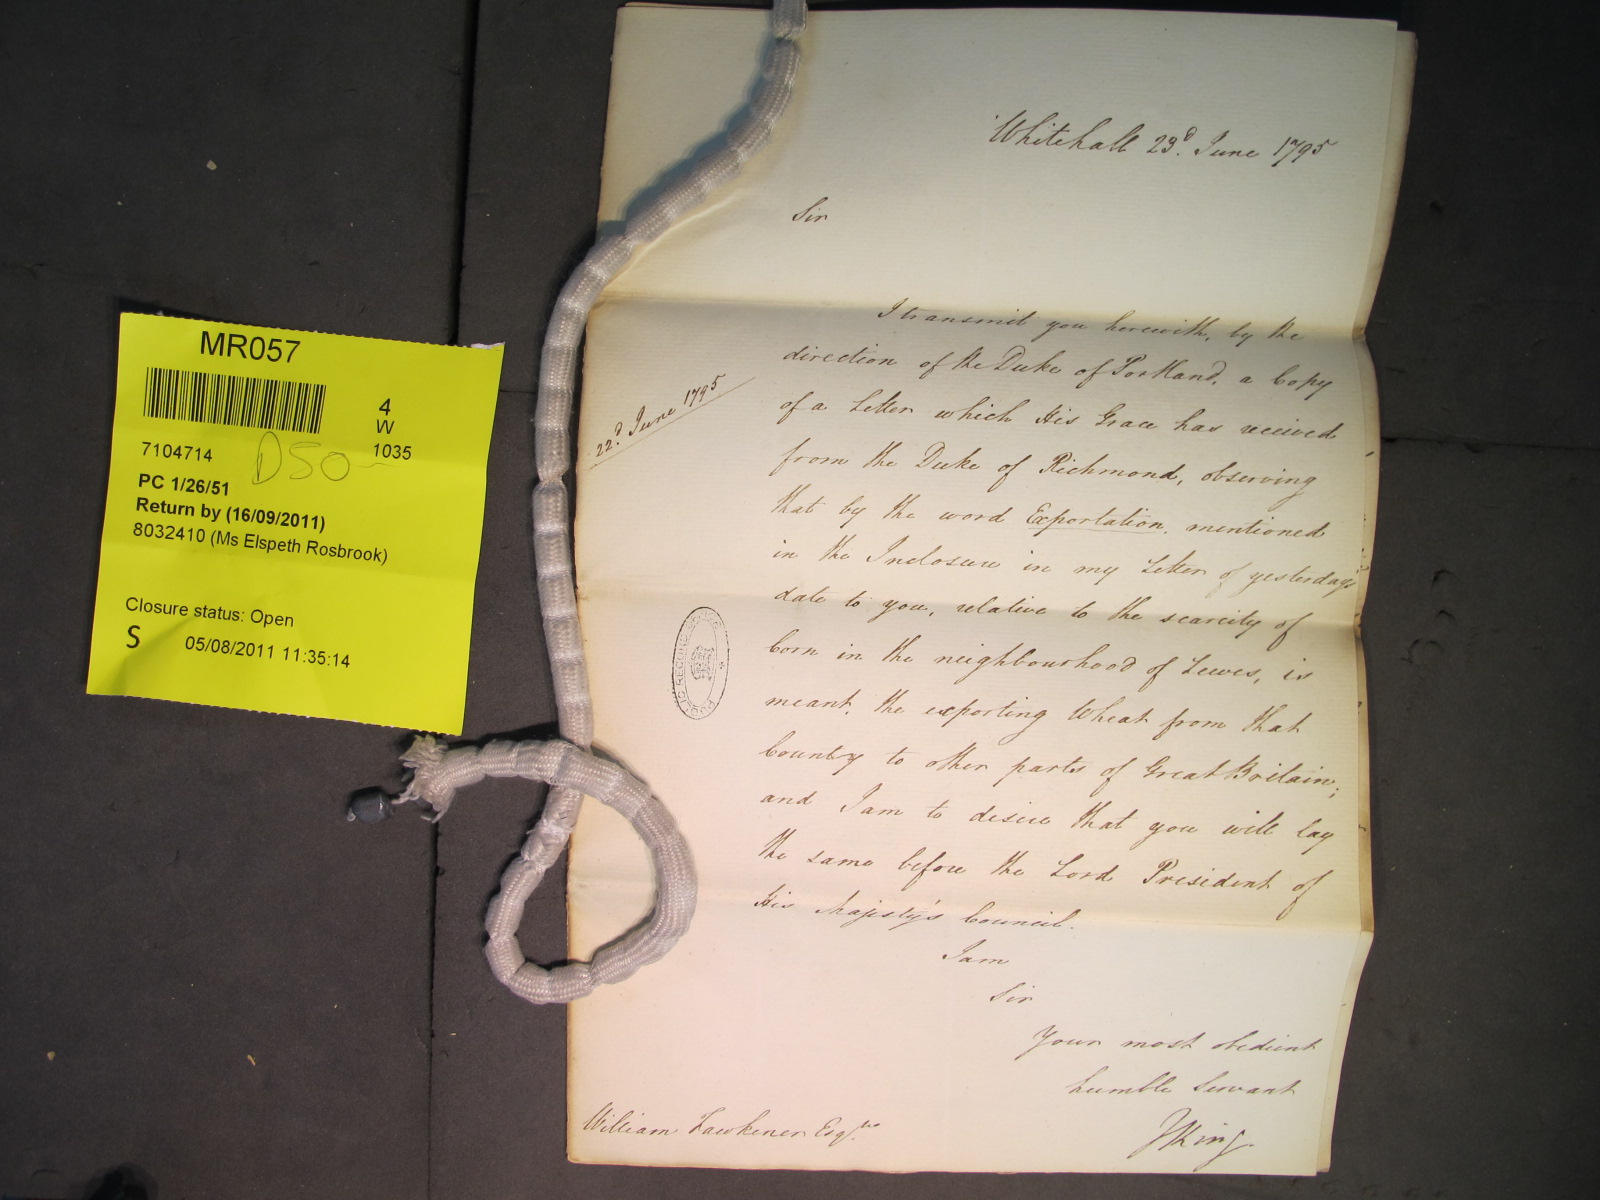 MR057
4
W
1035
7104714
D50
PC 1/26/51
Return by (16/09/2011)
8032410 (Ms Elspeth Rosbrook)
Closure status: Open
S 05/08/2011 11:35:14
Whitehall 23.d June 1795
Sir
I transmit you herewith, by the
direction of the Duke of Portland, a Copy
of a Letter which His Grace has received
22.d June 1795
from the Duke of Richmond, observing
that by the word Exportation, mentioned
in the Inclosure in my Letter of yesterdays
date to you, relative to the scarcity of
Corn in the neighbourhood of Lewes, is
meant, the exporting Wheat from that
County to other parts of Great Britain;
and I am to desire that you will lay
the same before the Lord President of
His Majesty's Council.
I am
Sir
Your most obedient
humble Servant
J King
William Fawkener Esq.re
PUBLIC RECORD OFFICE